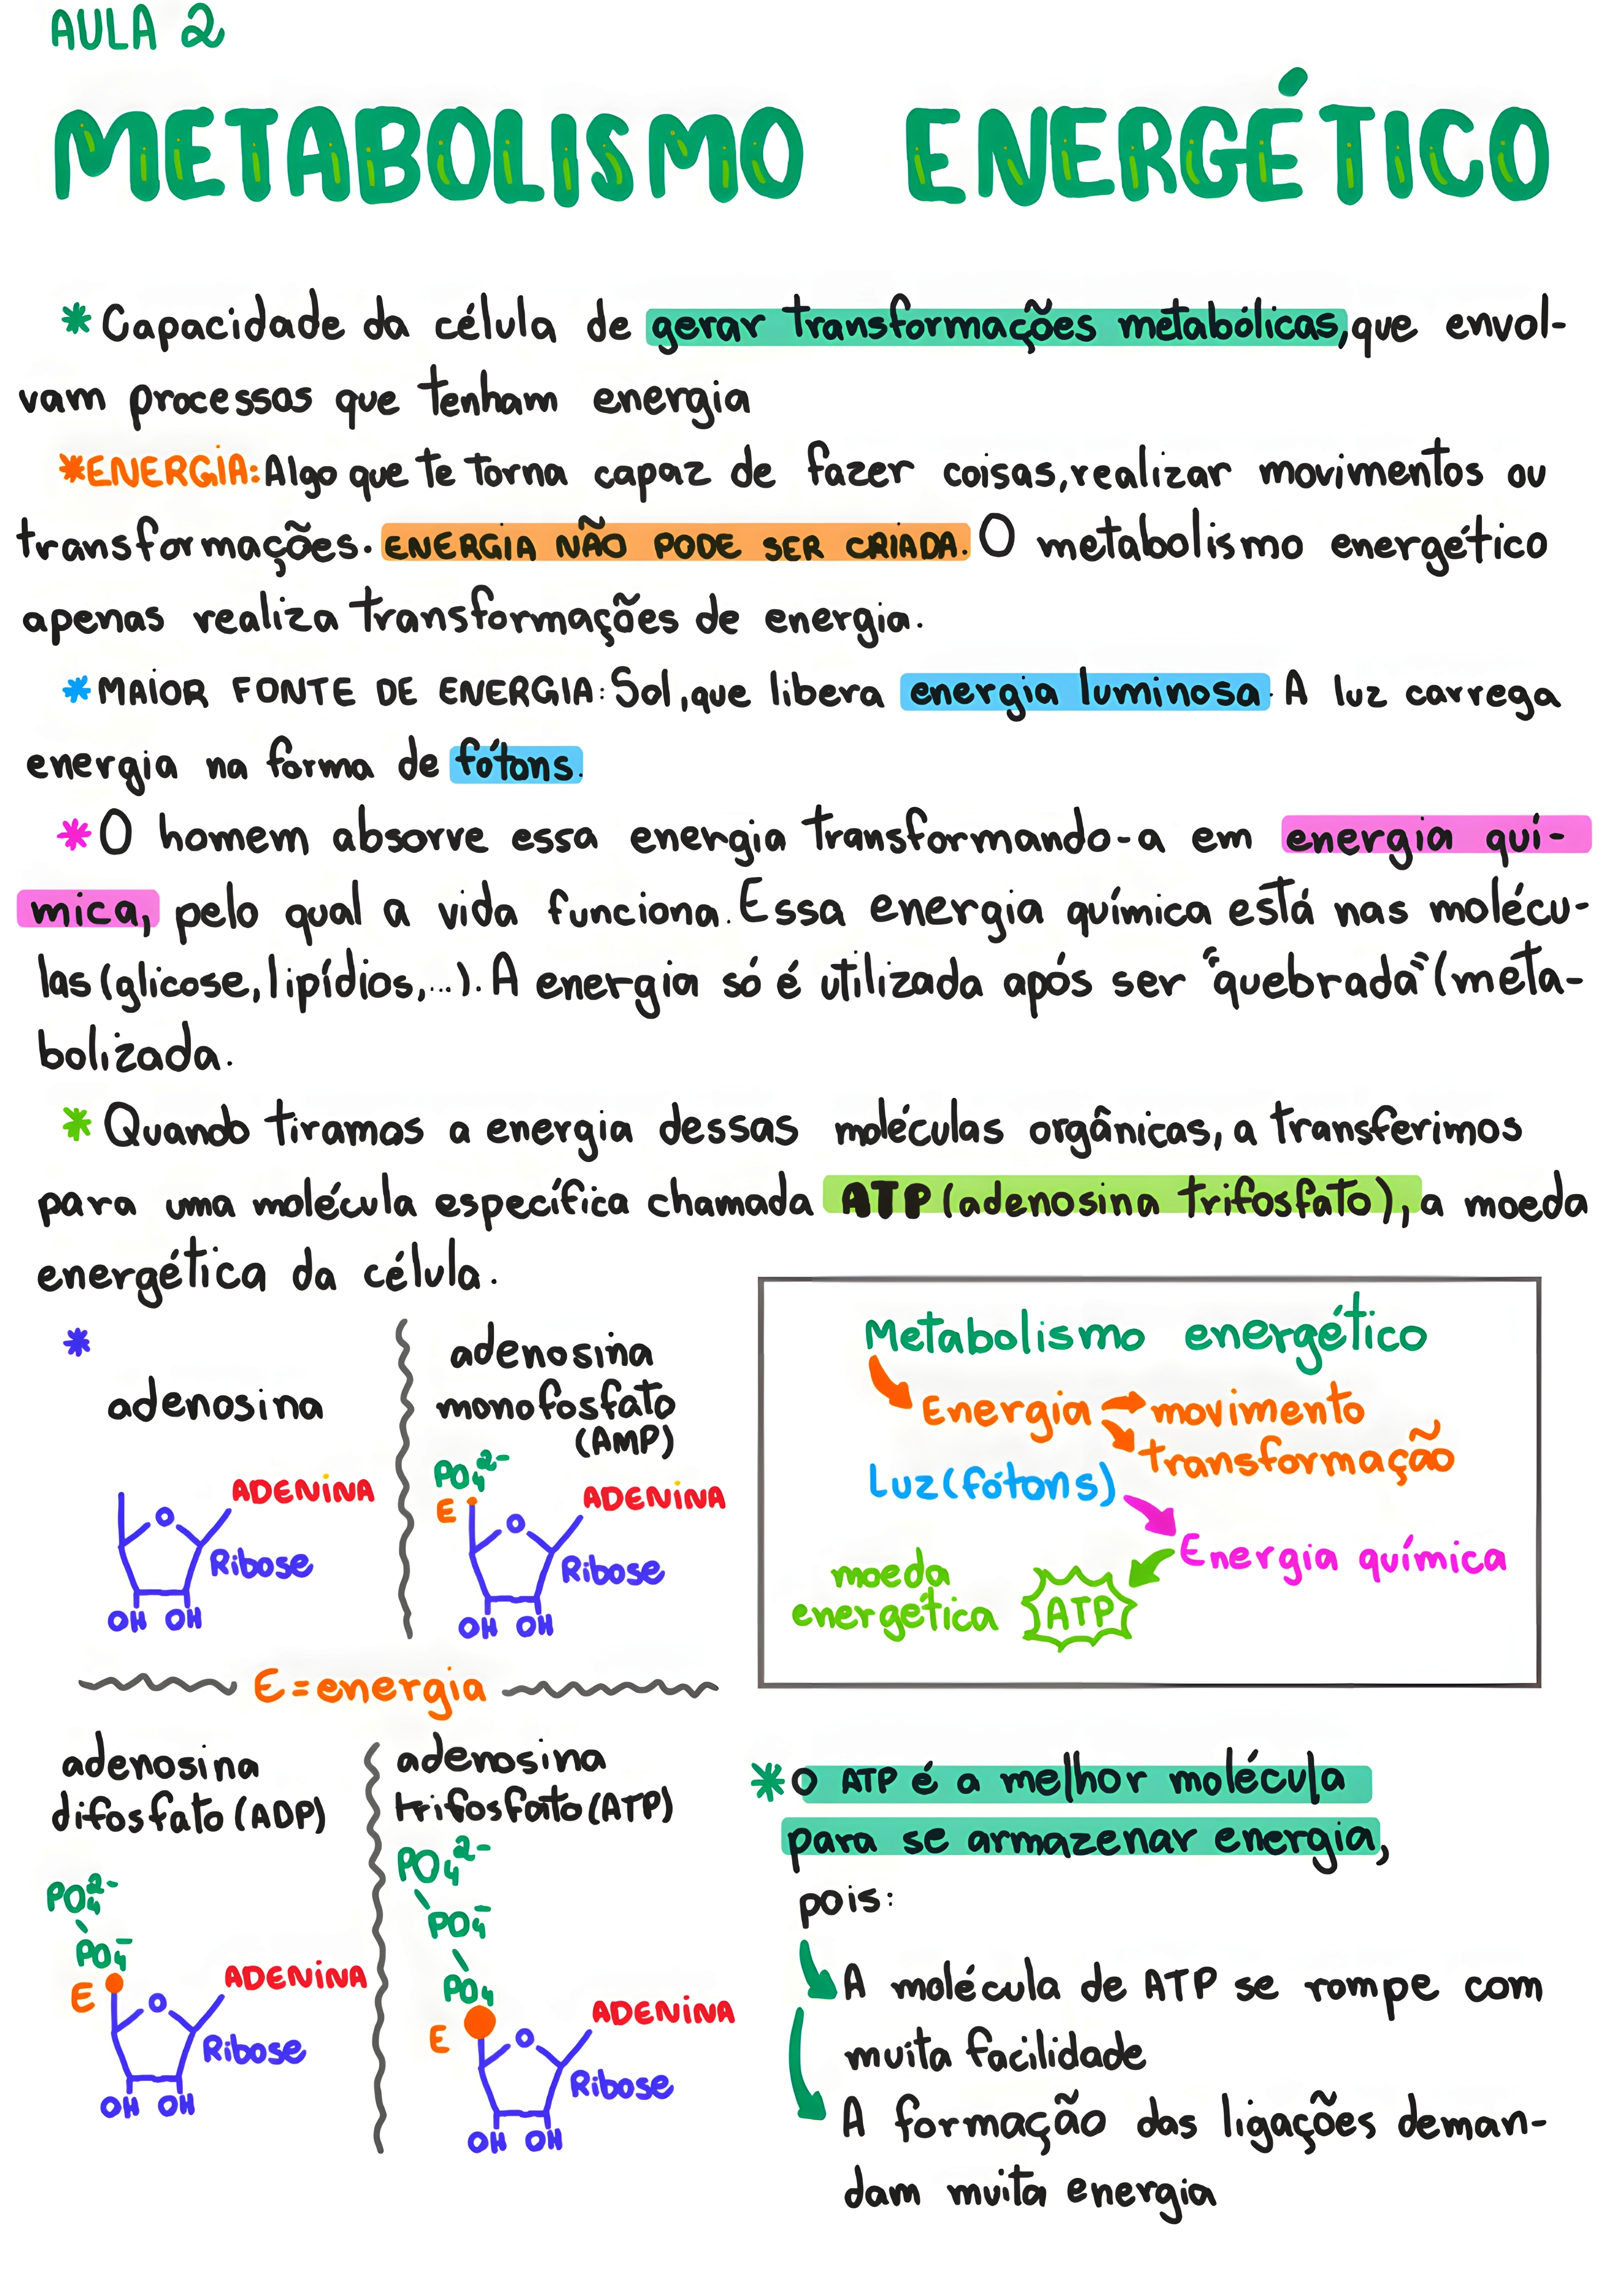 AULA 2
METABOLISMO ENERGÉTICO
* Capacidade da célula de gerar transformações metabólicas, que envol-
vam processos que tenham energia
* ENERGIA: Algo que te torna capaz de fazer coisas, realizar movimentos ou
transformações. ENERGIA NÃO PODE SER CRIADA. O metabolismo energético
apenas realiza transformações de energia.
* MAIOR FONTE DE ENERGIA: Sol, que libera energia luminosa. A luz carrega
energia na forma de fótons.
* O homem absorve essa energia transformando-a em energia quí-
mica, pelo qual a vida funciona. Essa energia química está nas molécu-
las (glicose, lipídios,...). A energia só é utilizada após ser "quebrada" (meta-
bolizada.
* Quando tiramos a energia dessas moléculas orgânicas, a transferimos
para uma molécula específica chamada ATP (adenosina trifosfato), a moeda
energética da célula.
*
adenosina
ADENINA
O
Ribose
OH OH
adenosina
monofosfato
(AMP)
PO₄²⁻
E
ADENINA
O
Ribose
OH OH
Metabolismo energético
Energia movimento
transformação
Luz (fótons)
Energia química
moeda
energética ATP
E = energia
adenosina
difosfato (ADP)
PO₄²⁻
PO₄⁻
E
ADENINA
O
Ribose
OH OH
adenosina
trifosfato (ATP)
PO₄²⁻
PO₄⁻
PO₄
E
ADENINA
O
Ribose
OH OH
* O ATP é a melhor molécula
para se armazenar energia,
pois:
A molécula de ATP se rompe com
muita facilidade
A formação das ligações deman-
dam muita energia